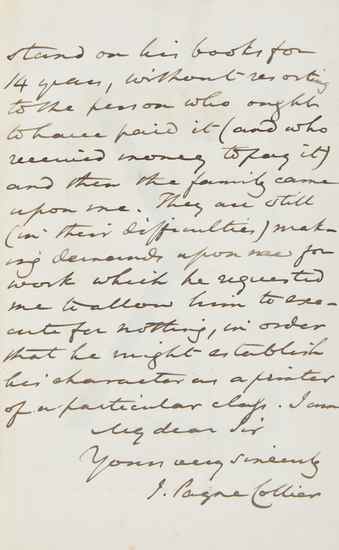 stand on his books for
14 years, without resorting
to the person who ought
to have paid it (and who
received money to pay it)
and then the family came
upon me. They are still
(in their difficulties) mak-
ing demands upon me for
work which he requested
me to allow him to exe-
cute for nothing, in order
that he might establish
his character as a printer
of a particular class. I am
My dear Sir
Yours very sincerely
J. Payne Collier